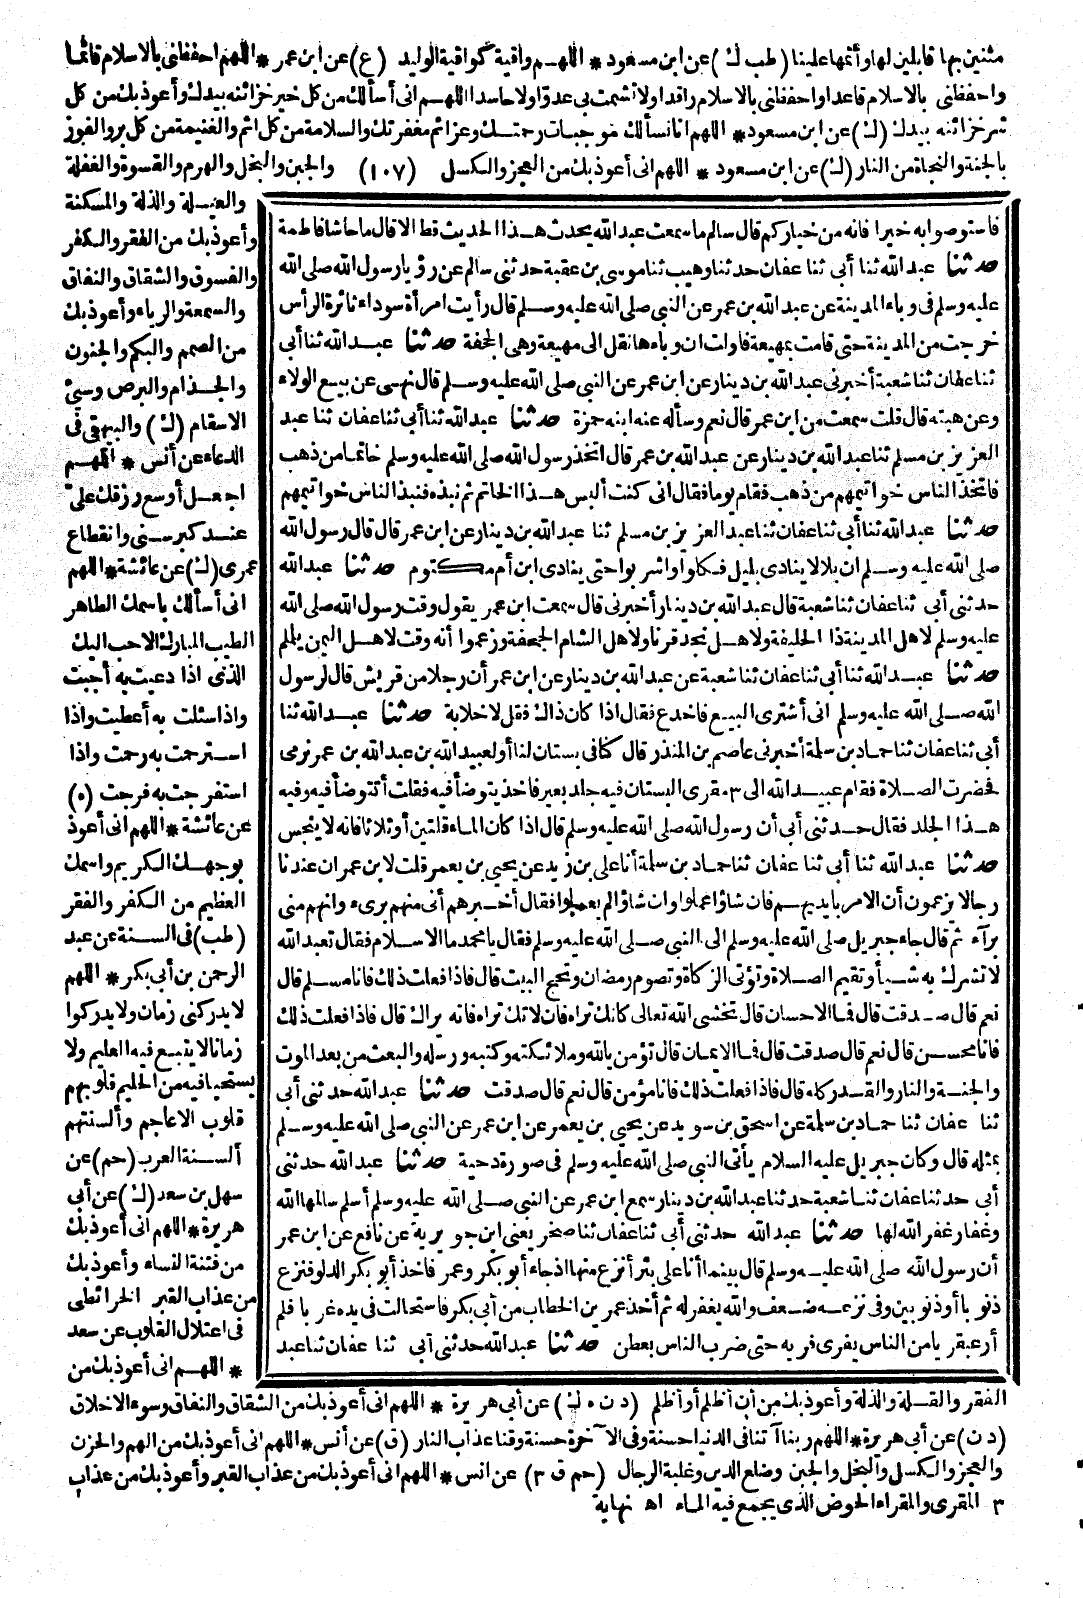 مثنين بها قابلين لها وأتمها علينا (طب ك) عن ابن مسعود * اللهم واقية كواقية الوليد (ع) عن ابن عمر * اللهم احفظني بالاسلام قائما
واحفظني بالاسلام قاعدا واحفظني بالاسلام راقدا ولا تشمت بي عدوا ولا حاسدا اللهم انى أسألك من كل خير خزائنه بيدك وأعوذ بك من كل
شر خزائنه بيدك (ك) عن ابن مسعود * اللهم انا نسألك موجبات رحمتك وعزائم مغفرتك والسلامة من كل اثم والغنيمة من كل بر والفوز
بالجنة والنجاة من النار (ك) عن ابن مسعود * اللهم انى أعوذ بك من العجز والكسل (١٠٧) والجبن والبخل والهرم والقسوة والغفلة
والعيلة والذلة والمسكنة
وأعوذ بك من الفقر والكفر
والفسوق والشقاق والنفاق
والسمعة والرياء وأعوذ بك
من الصمم والبكم والجنون
والجذام والبرص وسيئ
الاسقام (ك) والبيهقى فى
الدعاء عن أنس * اللهم
اجعل أوسع رزقك علىّ
عند كبر سنى وانقطاع
عمرى (ك) عن عائشة * اللهم
انى أسألك باسمك الطاهر
الطيب المبارك الاحب اليك
الذى اذا دعيت به أجبت
واذا سئلت به أعطيت واذا
استرحمت به رحمت واذا
استفرجت به فرجت (ه)
عن عائشة * اللهم انى أعوذ
بوجهك الكريم واسمك
العظيم من الكفر والفقر
(طب) فى السنة عن عبد
الرحمن بن أبى بكر * اللهم
لا يدركنى زمان ولا يدركوا
زمانا لا يتبع فيه العليم ولا
يستحيا فيه من الحليم قلوبهم
قلوب الاعاجم وألسنتهم
ألسنة العرب (حم) عن
سهل بن سعد (ك) عن أبى
هريرة * اللهم انى أعوذ بك
من فتنة النساء وأعوذ بك
من عذاب القبر الخرائطى
فى اعتلال القلوب عن سعد
* اللهم انى أعوذ بك من
فاستوصوا به خيرا فانه من خياركم قال سالم ما سمعت عبد الله يحدث هذا الحديث قط الا قال ما حاشا فاطمة
حدثنا عبد الله ثنا أبى ثنا عفان حدثنا وهيب ثنا موسى بن عقبة حدثنى سالم عن رؤيا رسول الله صلى الله
عليه وسلم فى وباء المدينة عن عبد الله بن عمر عن النبى صلى الله عليه وسلم قال رأيت امرأة سوداء ثائرة الرأس
خرجت من المدينة حتى قامت بمهيعة فاولت ان وباءها نقل الى مهيعة وهى الجحفة حدثنا عبد الله ثنا أبى
ثنا عفان ثنا شعبة أخبرنى عبد الله بن دينار عن ابن عمر عن النبى صلى الله عليه وسلم قال نهى عن بيع الولاء
وعن هبته قال قلت سمعت من ابن عمر قال نعم وسأله عنه ابنه حمزة حدثنا عبد الله ثنا أبى ثنا عفان ثنا عبد
العزيز بن مسلم ثنا عبد الله بن دينار عن عبد الله بن عمر قال اتخذ رسول الله صلى الله عليه وسلم خاتما من ذهب
فاتخذ الناس خواتيمهم من ذهب فقام يوما فقال انى كنت ألبس هذا الخاتم ثم نبذه فنبذ الناس خواتيمهم
حدثنا عبد الله ثنا أبى ثنا عفان ثنا عبد العزيز بن مسلم ثنا عبد الله بن دينار عن ابن عمر قال قال رسول الله
صلى الله عليه وسلم ان بلالا ينادى بليل فكلوا واشربوا حتى ينادى ابن أم مكتوم حدثنا عبد الله
حدثنى أبى ثنا عفان ثنا شعبة قال عبد الله بن دينار أخبرنى قال سمعت ابن عمر يقول وقت رسول الله صلى الله
عليه وسلم لاهل المدينة ذا الحليفة ولاهل نجد قرنا ولاهل الشام الجحفة وزعموا أنه وقت لاهل اليمن يلملم
حدثنا عبد الله ثنا أبى ثنا عفان ثنا شعبة عن عبد الله بن دينار عن ابن عمر أن رجلا من قريش قال لرسول
الله صلى الله عليه وسلم انى أشترى البيع فاخدع فقال اذا كان ذاك فقل لا خلابة حدثنا عبد الله ثنا
أبى ثنا عفان ثنا حماد بن سلمة أخبرنى عاصم بن المنذر قال كنا فى بستان لنا أو لعبيد الله بن عبد الله بن عمر نرمى
فحضرت الصلاة فقام عبيد الله الى ٣ مقرى البستان فيه جلد بعير فاخذ يتوضأ فيه فقلت أتتوضأ فيه وفيه
هذا الجلد فقال حدثنى أبى أن رسول الله صلى الله عليه وسلم قال اذا كان الماء قلتين أو ثلاثا فانه لا ينجس
حدثنا عبد الله ثنا أبى ثنا عفان ثنا حماد بن سلمة أنا على بن زيد عن يحيى بن يعمر قلت لابن عمر ان عندنا
رجالا يزعمون أن الامر بايديهم فان شاؤا عملوا وان شاؤا لم يعملوا فقال أخبرهم أنى منهم برىء وانهم منى
برآء ثم قال جاء جبريل صلى الله عليه وسلم الى النبى صلى الله عليه وسلم فقال يا محمد ما الاسلام فقال تعبد الله
لا تشرك به شيأ وتقيم الصلاة وتؤتى الزكاة وتصوم رمضان وتحج البيت قال فاذا فعلت ذلك فانا مسلم قال
نعم قال صدقت قال فما الاحسان قال تخشى الله تعالى كانك تراه فان لا تك تراه فانه يراك قال فاذا فعلت ذلك
فانا محسن قال نعم قال صدقت قال فما الايمان قال تؤمن بالله وملائكته وكتبه ورسله والبعث من بعد الموت
والجنة والنار والقدر كله قال فاذا فعلت ذلك فانا مؤمن قال نعم قال صدقت حدثنا عبد الله حدثنى أبى
ثنا عفان ثنا حماد بن سلمة عن اسحق بن سويد عن يحيى بن يعمر عن ابن عمر عن النبى صلى الله عليه وسلم
بمثله قال وكان جبريل عليه السلام يأتى النبى صلى الله عليه وسلم فى صورة دحية حدثنا عبد الله حدثنى
أبى حدثنا عفان ثنا شعبة حدثنا عبد الله بن دينار سمع ابن عمر عن النبى صلى الله عليه وسلم أسلم سالمها الله
وغفار غفر الله لها حدثنا عبد الله حدثنى أبى ثنا عفان ثنا صخر يعنى ابن جويرية عن نافع عن ابن عمر
أن رسول الله صلى الله عليه وسلم قال بينما أنا على بئر أنزع منها اذ جاء أبو بكر وعمر فاخذ أبو بكر الدلو فنزع
ذنوبا أو ذنوبين وفى نزعه ضعف والله يغفر له ثم أخذ عمر بن الخطاب من أبى بكر فاستحالت فى يده غربا فلم
أر عبقريا من الناس يفرى فريه حتى ضرب الناس بعطن حدثنا عبد الله حدثنى أبى ثنا عفان ثنا عبد
الفقر والقلة والذلة وأعوذ بك من أن أظلم أو أظلم (د ن ه ك) عن أبى هريرة * اللهم انى أعوذ بك من الشقاق والنفاق وسوء الاخلاق
(د ن) عن أبى هريرة * اللهم ربنا آتنا فى الدنيا حسنة وفى الآخرة حسنة وقنا عذاب النار (ق) عن أنس * اللهم انى أعوذ بك من الهم والحزن
والعجز والكسل والبخل والجبن وضلع الدين وغلبة الرجال (حم ق ٣) عن انس * اللهم انى أعوذ بك من عذاب القبر وأعوذ بك من عذاب
٣ المقرى والمقراء الحوض الذى يجمع فيه الماء اه نهاية